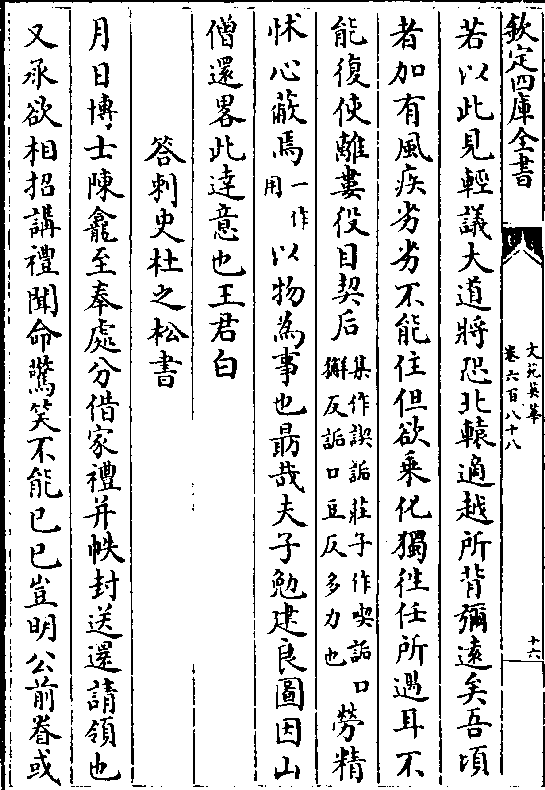 欽定四庫全書
文苑英華
卷六百八十八
十六
若以此見輕議大道將恐北轅適越所背彌遠矣吾頃
者加有風疾劣劣不能住但欲乘化獨往任所遇耳不
能復使離婁役目契后集作諜詬莊子作喫詬口
懈反詬口豆反多力也勞精
怵心蔽焉一作
用以物為事也勗哉夫子勉建良圖因山
僧還畧此達意也王君白
答刺史杜之松書
月日博士陳龕至奉處分借家禮并帙封送還請領也
又承欲相招講禮聞命驚笑不能已已豈明公前眷或